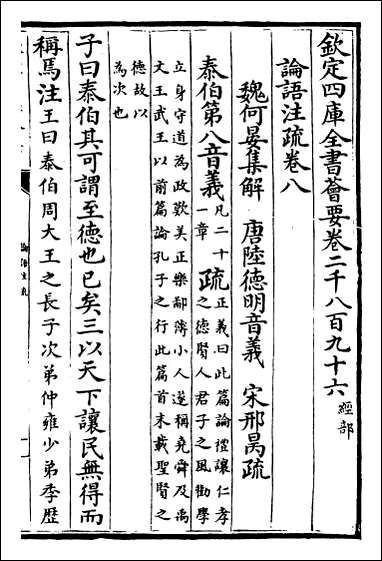 欽定四庫全書薈要卷二千八百九十六 經部
論語注疏卷八
魏何晏集解 唐陸德明音義 宋邢昺疏
泰伯第八音義凡二十一章疏正義曰此篇論禮讓仁孝之德賢人君子之風勸學
立身守道為政歎美正樂鄙薄小人遂稱堯舜及禹
文王武王以前篇論孔子之行此篇首末載聖賢之
德故以
為次也
子曰泰伯其可謂至德也已矣三以天下讓民無得而
稱焉注王曰泰伯周大王之長子次弟仲雍少弟季歷